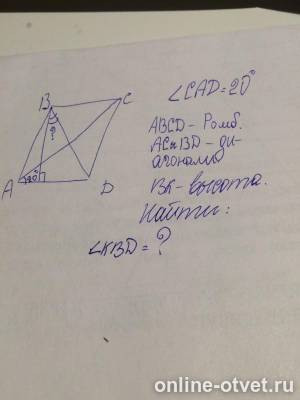 B
C
?
A
20°
D
∠CAD=20°
ABCD - Ромб.
AC и BD - ди-
агонали
BK - высота.
Найти:
∠KBD = ?
online-otvet.ru